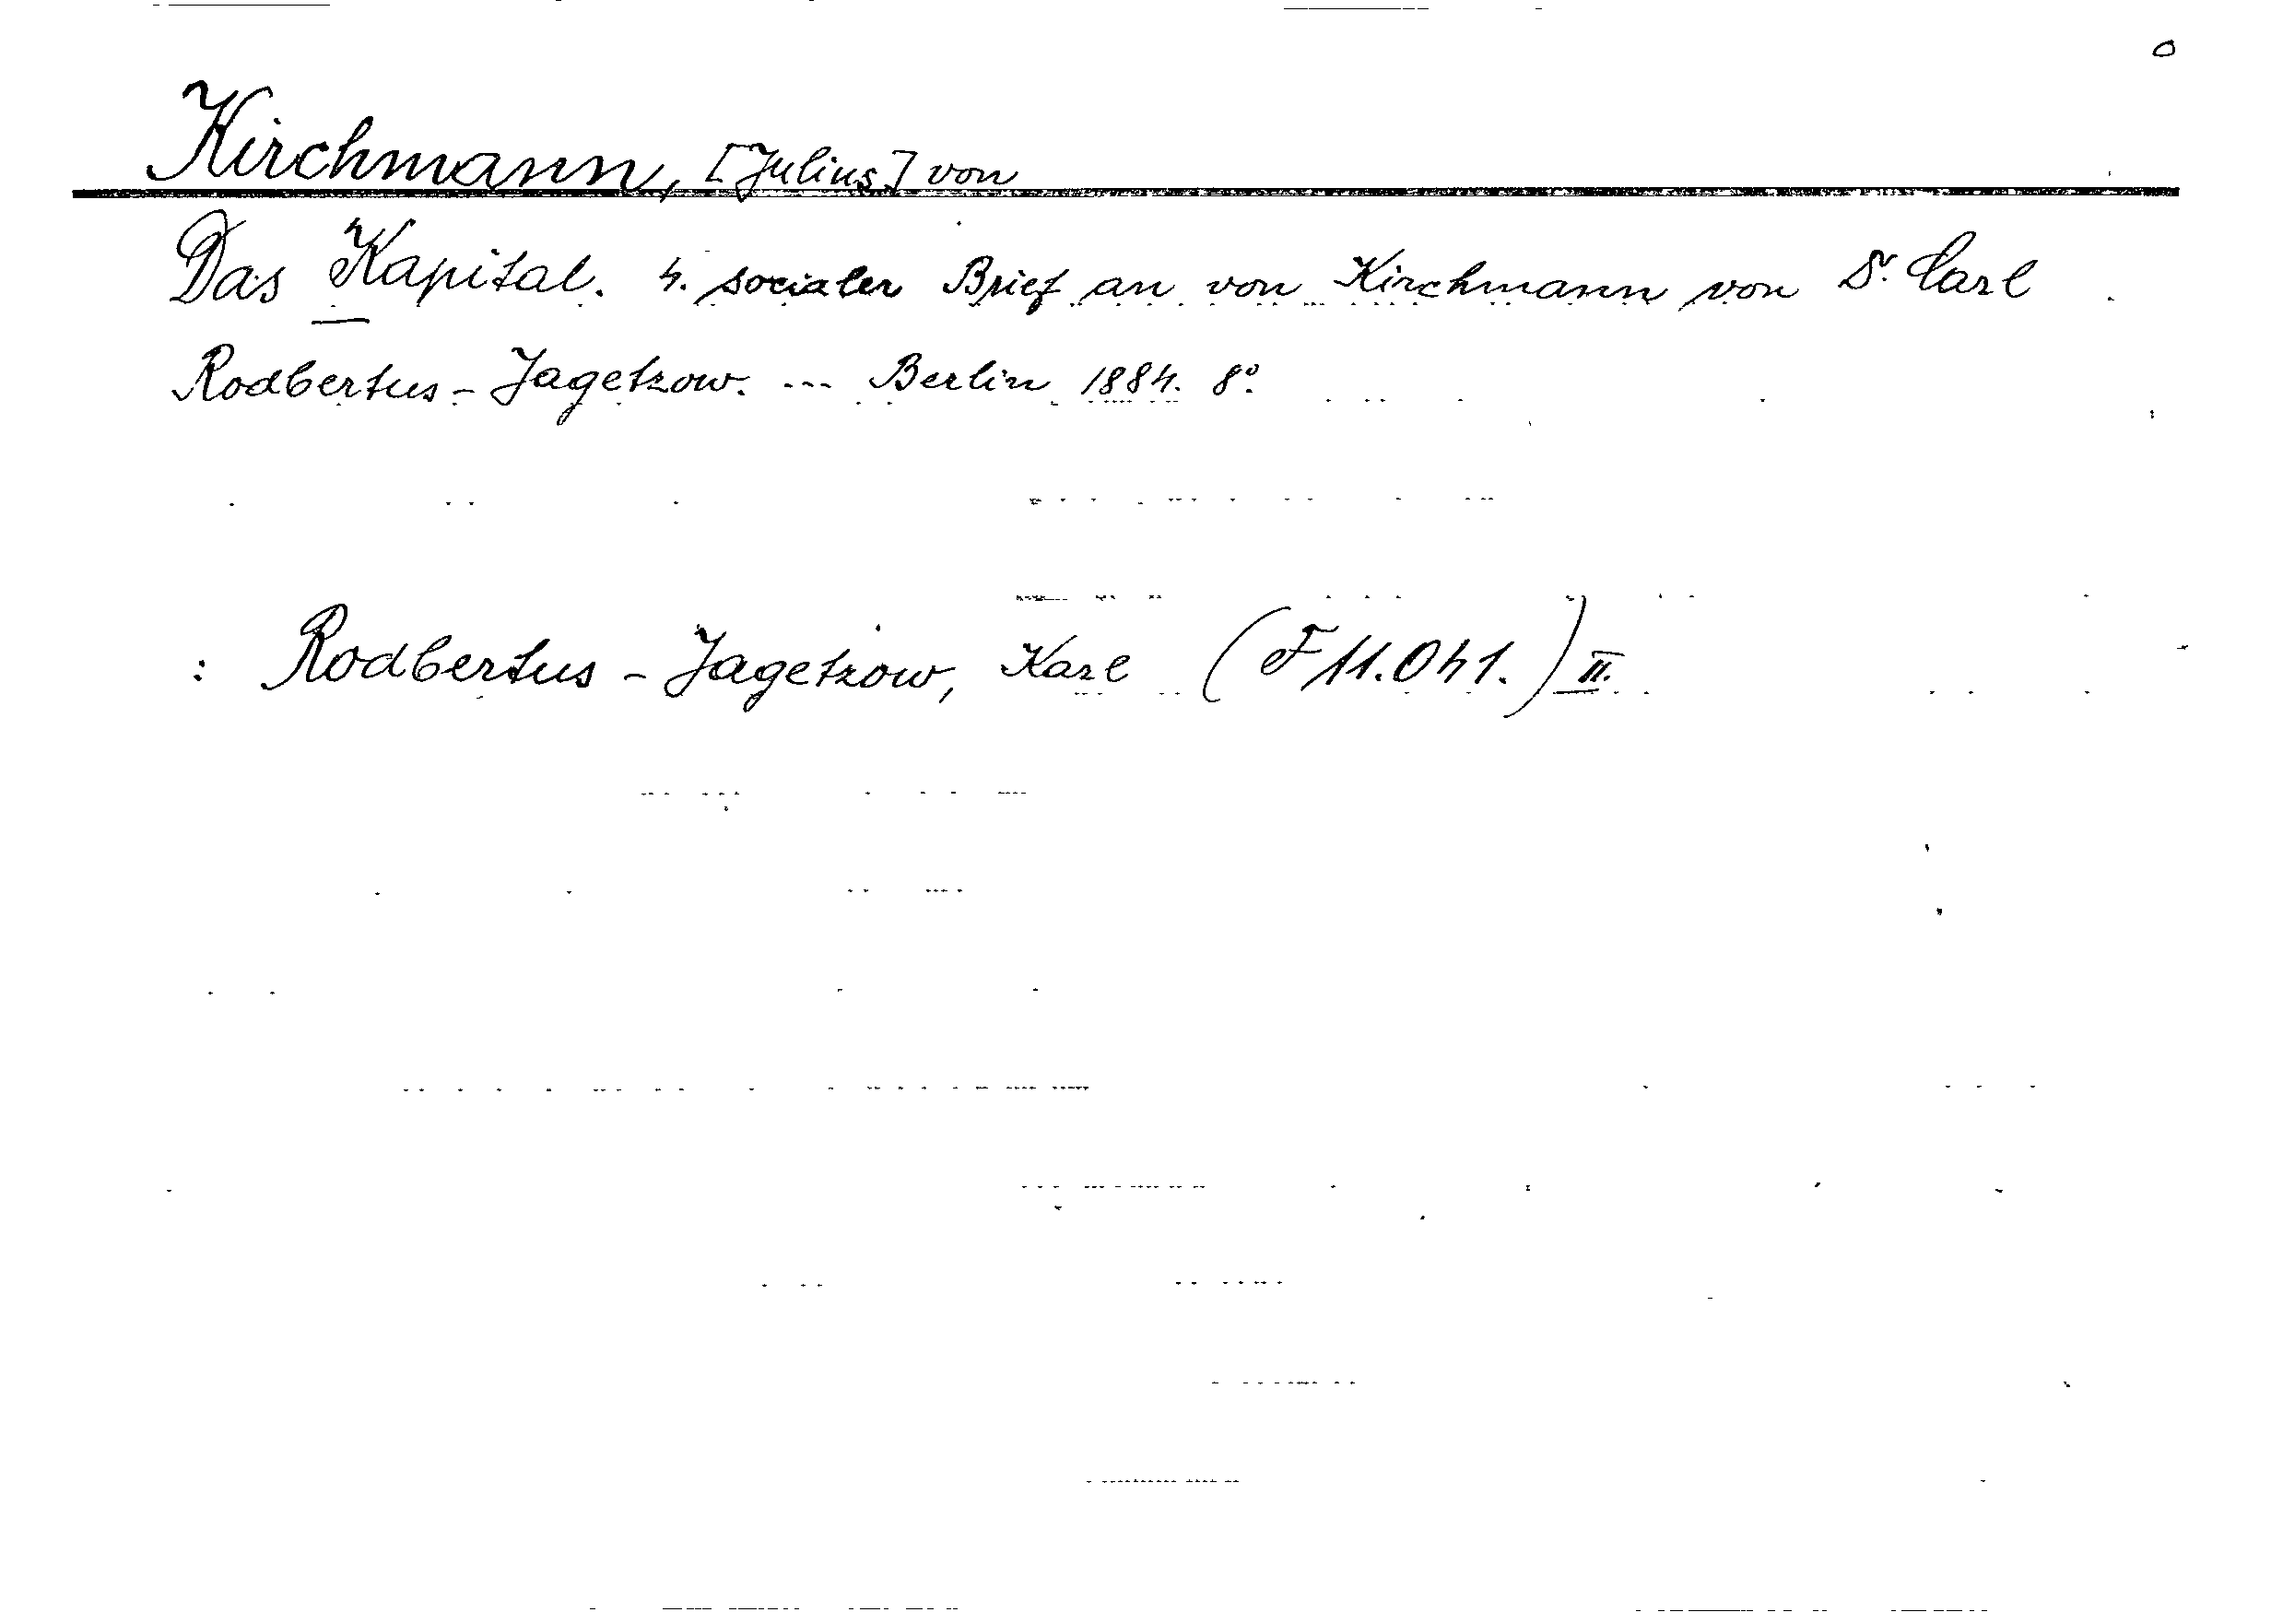 Kirchmann, [Julius] von
Das Kapital. 4. socialer Brief an von Kirchmann von Dr. Carl
Rodbertus-Jagetzow. --- Berlin 1884. 8°.
: Rodbertus-Jagetzow, Karl (F 11.041.) II.